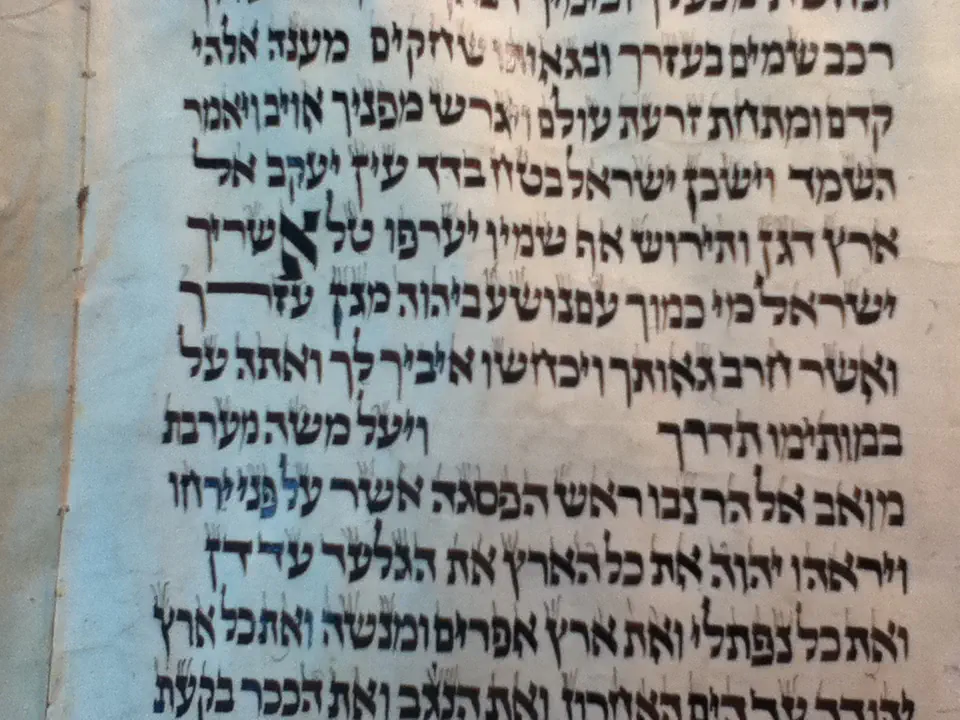 רכב שמים בעזרך ובגאותו שחקים מענה אלהי
קדם ומתחת זרעת עולם ויגרש מפניך אויב ויאמר
השמד וישכן ישראל בטח בדד עין יעקב אל
ארץ דגן ותירוש אף שמיו יערפו טל אשריך
ישראל מי כמוך עם נושע ביהוה מגן עזרך
ואשר חרב גאותך ויכחשו איביך לך ואתה על
במותימו תדרך ויעל משה מערבת
מואב אל הר נבו ראש הפסגה אשר על פני ירחו
ויראהו יהוה את כל הארץ את הגלעד עד דן
ואת כל נפתלי ואת ארץ אפרים ומנשה ואת כל ארץ
יהודה עד הים האחרון ואת הנגב ואת הככר בקעת